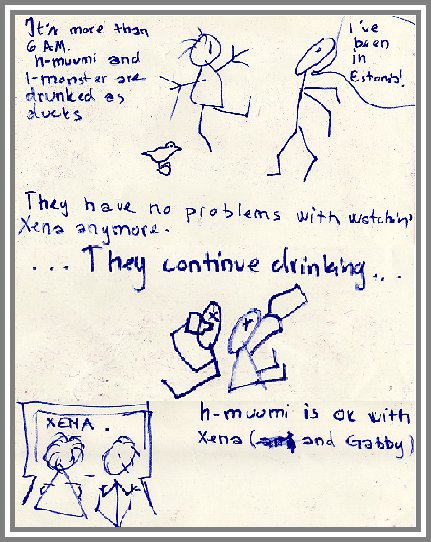 It's more than
6 AM.
h-muumi and
l-monster are
drunked as
ducks
I've
been
in
Estonia!
They have no problems with watchin'
Xena anymore.
... They continue drinking...
XENA.
h-muumi is ok with
Xena ( and Gabby)